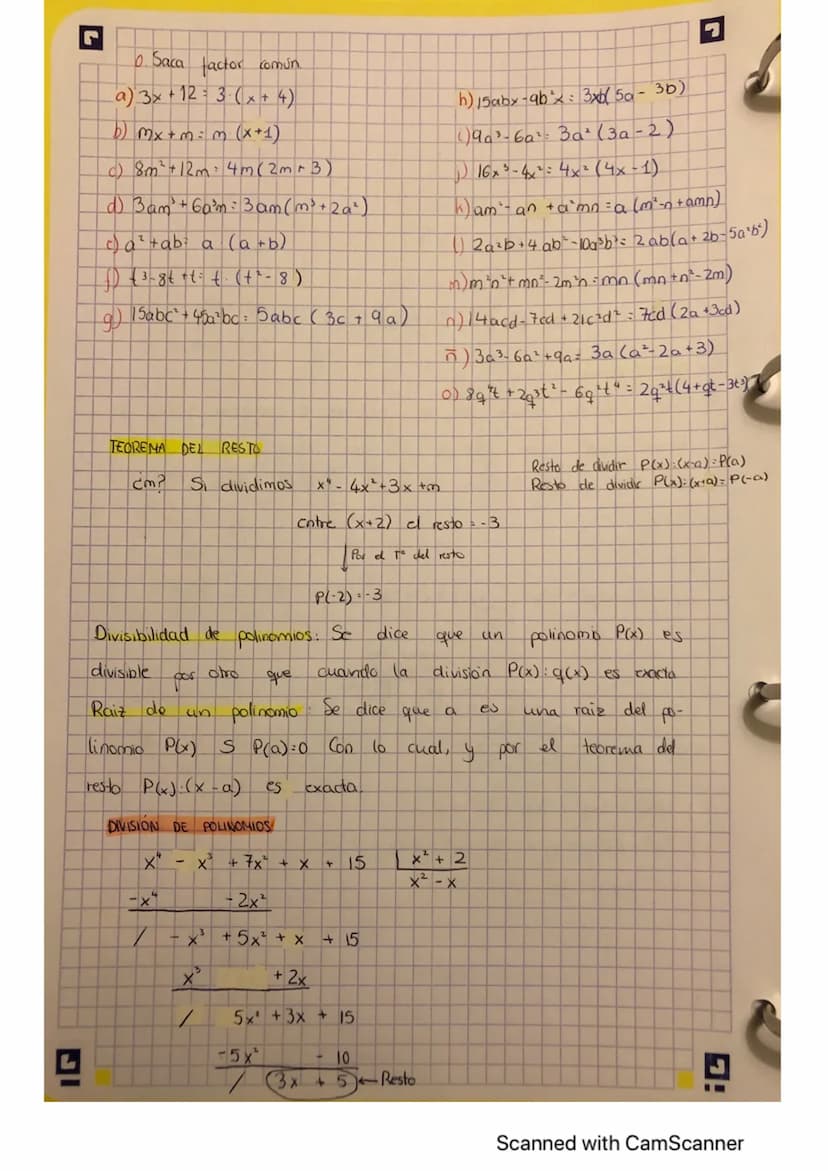 0. Saca factor común
a) 3x + 12 = 3·(x + 4)
b) mx + m = m (x+1)
c) 8m² + 12m = 4m (2m + 3)
d) 3am³ + 6a³m = 3am (m² + 2a²)
e) a² + ab = a (a + b)
f) t³ - 8t + t = t·(t² - 8)
g) 15abc² + 45a²bc = 5abc (3c + 9a)
h) 15abx - 9b²x = 3xb (5a - 3b)
i) 9a³ - 6a² = 3a² (3a - 2)
j) 16x³ - 4x² = 4x² (4x - 1)
k) am² - an + a²mn = a (m² - n + amn)
l) 2a²b + 4ab² - 10a³b³ = 2ab (a + 2b - 5a²b²)
m) m²n² + mn³ - 2m²n = mn (mn + n² - 2m)
n) 14acd - 7cd + 21c²d² = 7cd (2a + 3cd)
ñ) 3a³ - 6a² + 9a = 3a (a² - 2a + 3)
o) 8q²t + 2q³t² - 6q²t⁴ = 2q²t (4 + qt - 3t³)
TEOREMA DEL RESTO
Resto de dividir P(x):(x-a) = P(a)
Resto de dividir P(x):(x+a) = P(-a)
¿m? Si dividimos x⁴ - 4x² + 3x + m
entre (x+2) el resto = -3
Por el Tª del resto
P(-2) = -3
Divisibilidad de polinomios: Se dice que un polinomio P(x) es
divisible por otro que cuando la división P(x):q(x) es exacta
Raiz de un polinomio: Se dice que a es una raiz del po-
linomio P(x) S P(a)=0 Con lo cual, y por el teorema del
resto P(x):(x - a) es exacta.
DIVISIÓN DE POLINOMIOS
x⁴ - x³ + 7x² + x + 15 | x² + 2
x² - x
-x⁴ - 2x²
/ - x³ + 5x² + x + 15
x³ + 2x
/ 5x² + 3x + 15
-5x² - 10
/ 3x + 5 ← Resto
Scanned with CamScanner